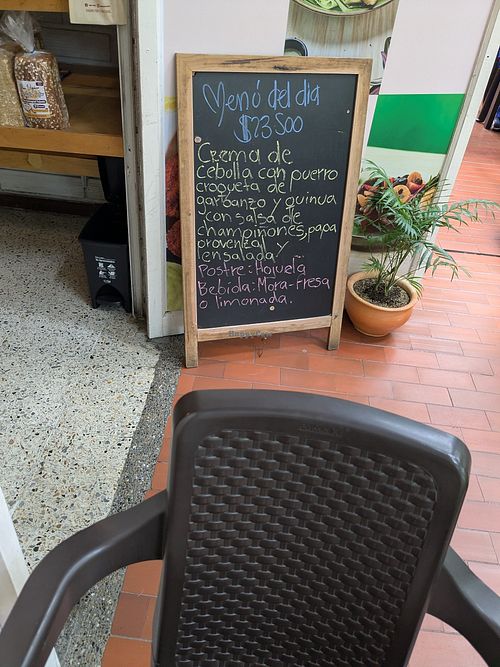 Menú del dia
$23500
Crema de
Cebolla con puerro
croqueta del
garbanzo y quinua
y con salsa de
champiñones, papa
provenzal y
ensalada.
Postre: Hojuela
Bebida: Mora-fresa
o limonada.